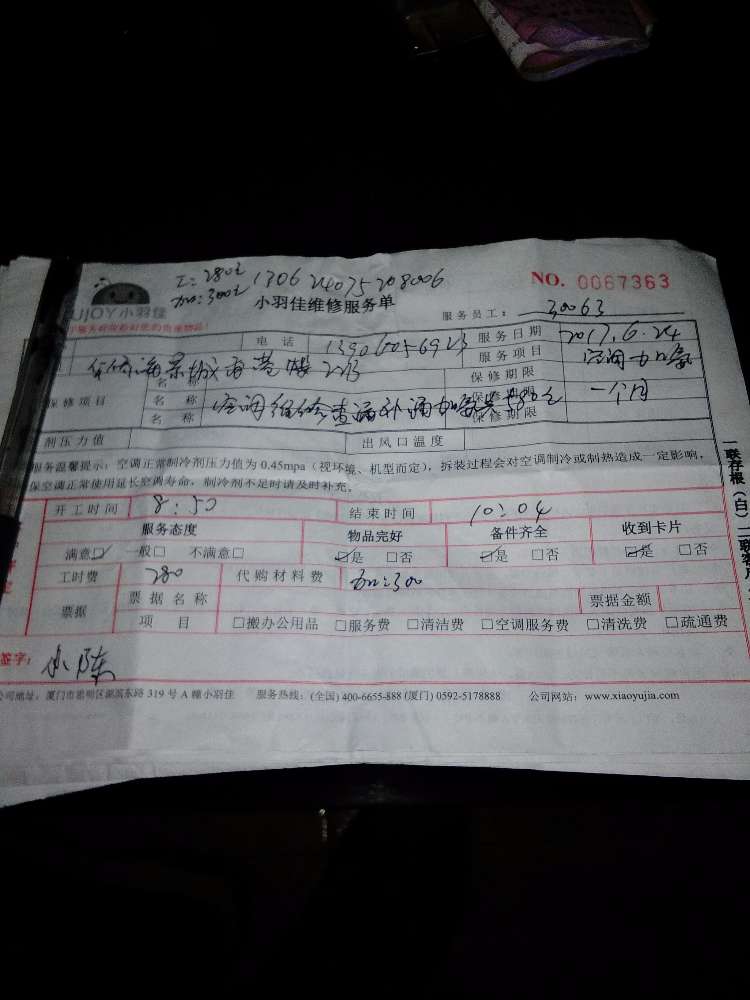 工:280元 130624075208006
加:300元
NO. 0067363
UJOY小羽佳
小羽佳维修服务单
服务员工: 30063
电 话 服务日期 2017.6.24
服务项目 空调加氨
保修期限
保修项目 名 称 空调维修查漏补漏加氨共580元 保修期限 一个月
名 称 保修期限
剂压力值 出风口温度
服务温馨提示:空调正常制冷剂压力值为 0.45mpa(视环境、机型而定),拆装过程会对空调制冷或制热造成一定影响,
保空调正常使用延长空调寿命,制冷剂不足时请及时补充。
一联存根(白)
开工时间 8:50 结束时间 10:04
服务态度 物品完好 备件齐全 收到卡片
满意☑ 一般□ 不满意□ ☑是 □否 ☑是 □否 ☑是 □否
工时费 280 代购材料费 加:300
票据 票据名称 票据金额
项 目 □搬办公用品 □服务费 □清洁费 □空调服务费 □清洗费 □疏通费
签字: 小陈
公司地址:厦门市思明区湖滨东路 319 号 A 幢小羽佳 服务热线:(全国) 400-6655-888 (厦门) 0592-5178888 公司网站:www.xiaoyujia.com